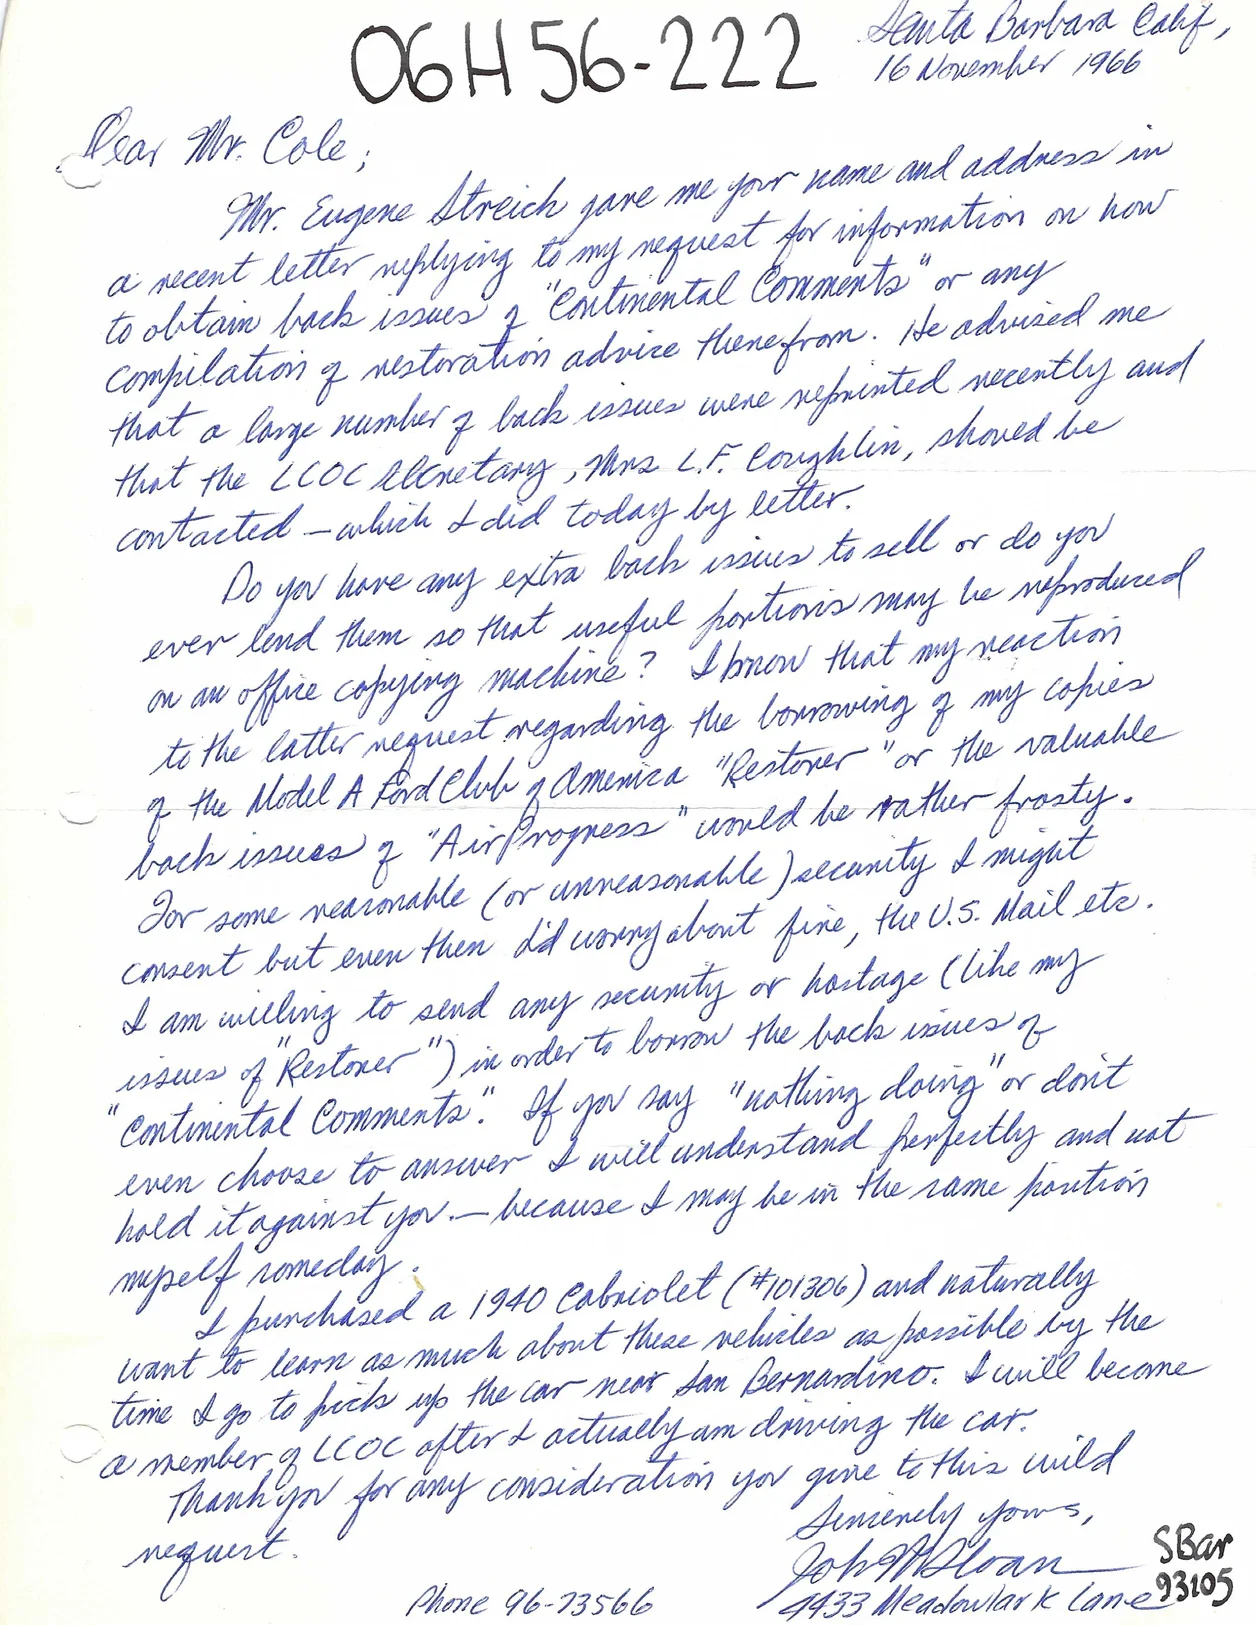 06H56-222
Santa Barbara Calif,
16 November 1966
Dear Mr. Cole;
Mr. Eugene Streich gave me your name and address in
a recent letter replying to my request for information on how
to obtain back issues of "Continental Comments" or any
compilation of restoration advice therefrom. He advised me
that a large number of back issues were reprinted recently and
that the LCOC secretary, Mrs L.F. Coughlin, should be
contacted – which I did today by letter.
Do you have any extra back issues to sell or do you
ever lend them so that useful portions may be reproduced
on an office copying machine? I know that my reaction
to the latter request regarding the borrowing of my copies
of the Model A Ford Club of America "Restorer" or the valuable
back issues of "Air Progress" would be rather frosty.
For some reasonable (or unreasonable) security I might
consent but even then I'd worry about fire, the U.S. Mail etc.
I am willing to send any security or hostage (like my
issues of "Restorer") in order to borrow the back issues of
"Continental Comments". If you say "nothing doing" or don't
even choose to answer I will understand perfectly and not
hold it against you. – because I may be in the same position
myself someday.
I purchased a 1940 Cabriolet (#101306) and naturally
want to learn as much about these vehicles as possible by the
time I go to pick up the car near San Bernardino. I will become
a member of LCOC after I actually am driving the car.
Thank you for any consideration you give to this wild
request.
Sincerely yours,
John M Sloan
4433 Meadowlark Lane
SBar
93105
Phone 96-73566